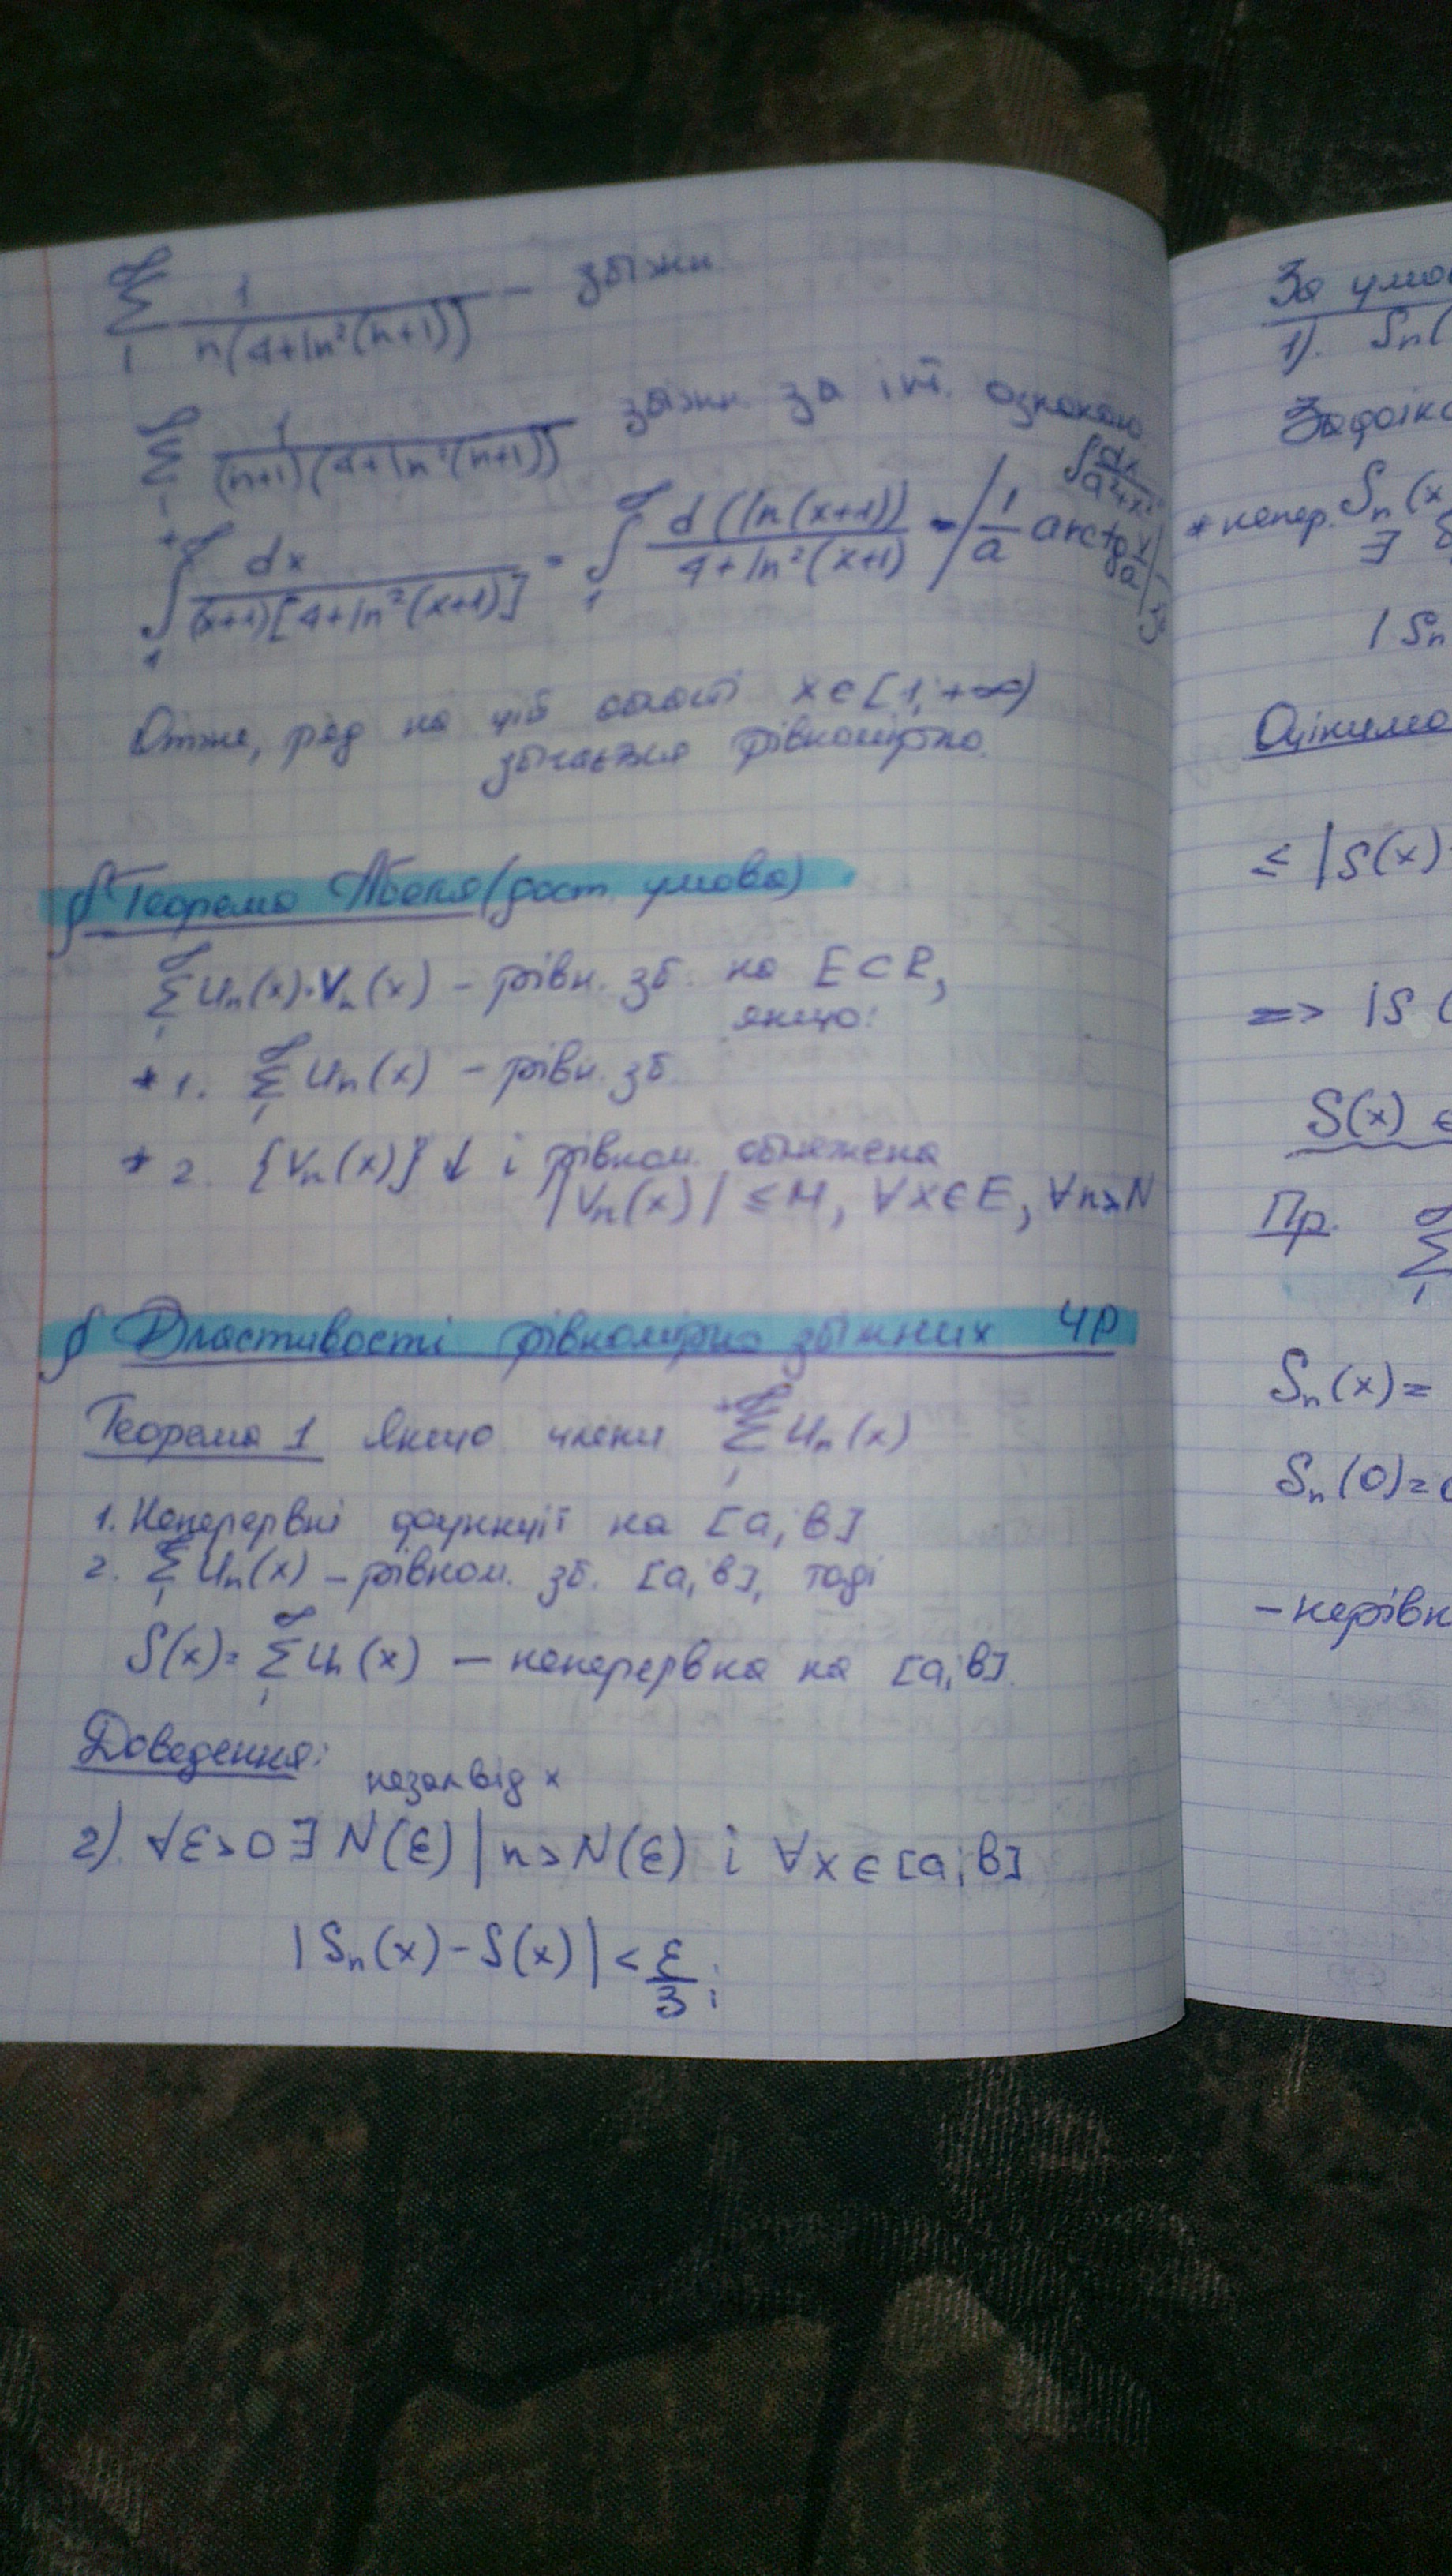 ∞
Σ 1/(n(4+ln²(n+1))) – збіжн
1
∞
Σ 1/((n+1)(4+ln²(n+1))) збіжн. за інт. ознакою
1
+∞
∫ dx/((x+1)[4+ln²(x+1)]) = ∫ d(ln(x+1))/(4+ln²(x+1)) = | 1/a arctg
1
∫dx/(a²+x²)
Отже, ряд на цій області x∈[1;+∞)
збігається рівномірно.
§ Теорема Абеля (дост. умова)
∞
Σ Un(x)·Vn(x) – рівн. зб. на E⊂R,
1
якщо:
* 1. Σ Un(x) – рівн. зб
* 2. {Vn(x)}↓ і рівном. обмежена
|Vn(x)| ≤ M, ∀x∈E, ∀n>N
§ Властивості рівномірно збіжних ФР
Теорема 1 Якщо члени Σ Un(x)
1. Неперервні функції на [a;b]
2. Σ Un(x) – рівном. зб. [a;b], тоді
S(x)= Σ Un(x) – неперервна на [a;b].
Доведення:
незал від x
2). ∀ε>0 ∃ N(ε) | n>N(ε) і ∀x∈[a;b]
|Sn(x)-S(x)| < ε/3;
За умо
1). Sn(
Зафікс
* непер. Sn(x
∃ δ
|Sn
Оцінимо
≤ |S(x)
=> |S(
S(x) є
Пр. Σ
Sn(x)=
Sn(0)=
– нерівн